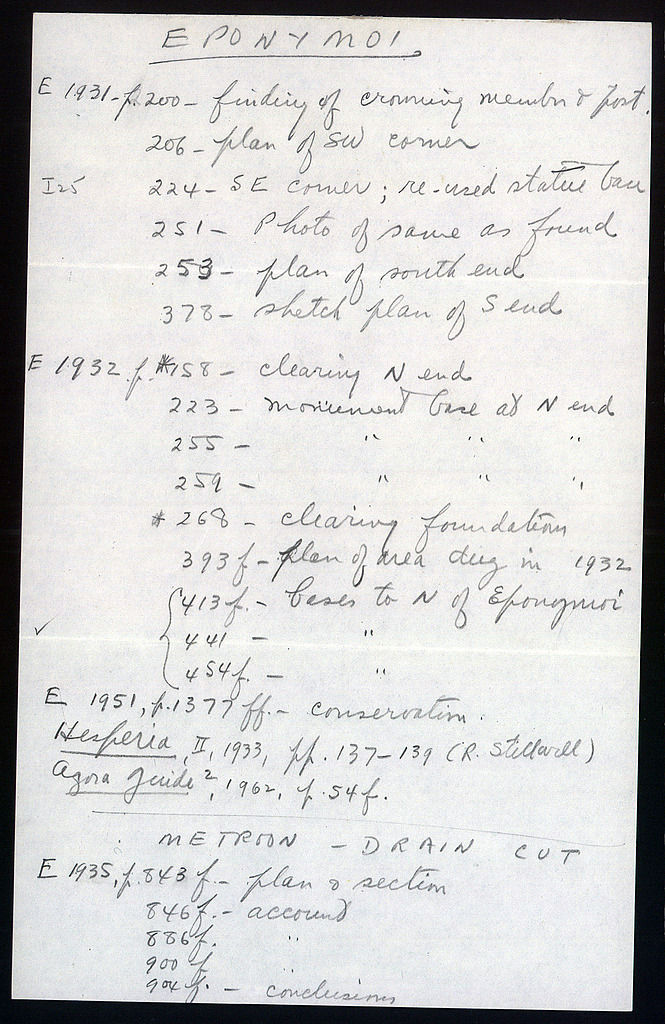 EPONYMOI
E 1931 - p. 200 - finding of crowning member & post.
206 - plan of SW corner
I25 224 - SE corner; re-used statue base
251 - Photo of same as found
253 - plan of south end
378 - sketch plan of S end
E 1932 p. *158 - clearing N end
223 - monument base at N end
255 - " " "
259 - " " "
* 268 - clearing foundations
393 f - plan of area dug in 1932
413 f. - bases to N of Eponymoi
✓ 441 - "
454 f. - "
E 1951, p. 1377 ff. - conservation.
Hesperia, II, 1933, pp. 137-139 (R. Stillwell)
Agora Guide², 1962, p. 54 f.
METROON - DRAIN CUT
E 1935, p. 843 f. - plan & section
846 f. - account
886 f. "
900 f
904 f. - conclusions